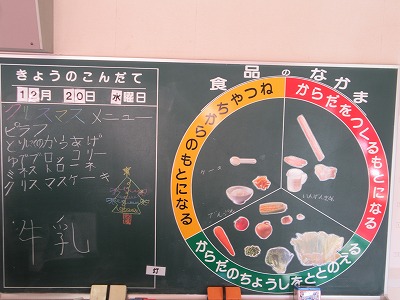 きょうのこんだて
12月 20日 水曜日
クリスマスメニュー
ピラフ
とりにくからあげ
ゆでブロッコリー
ミネストローネ
クリスマスケーキ
牛乳
灯
食品のなかま
ねつやちからのもとになる
からだをつくるもとになる
からだのちょうしをととのえる
ケーキ